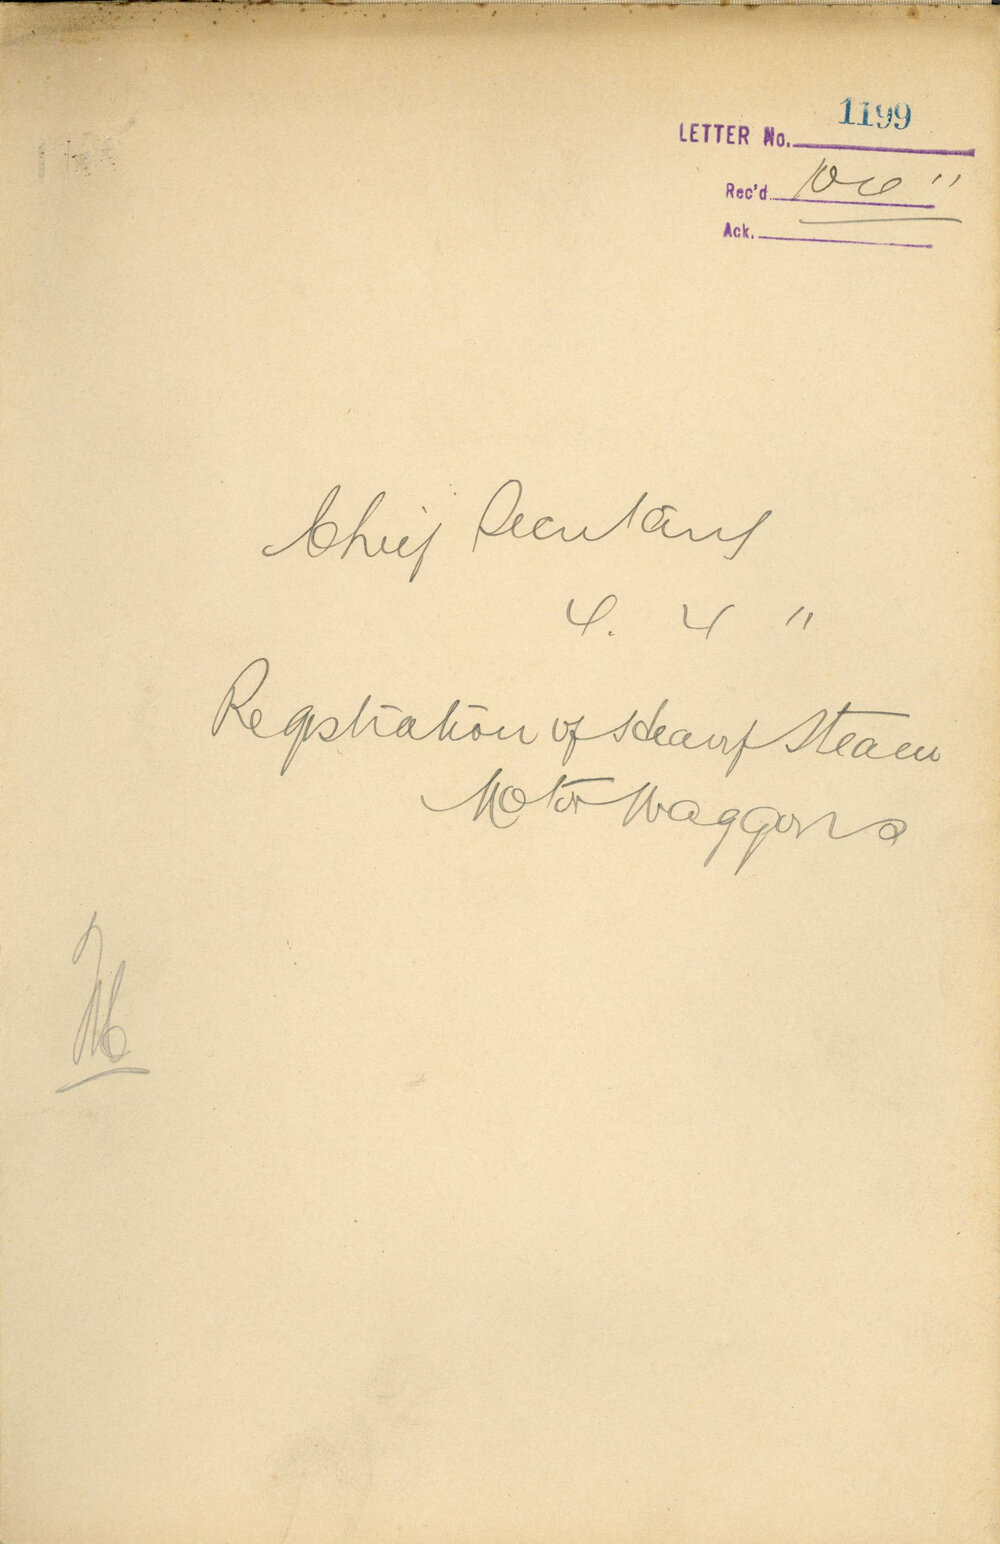 LETTER No. 1199
Rec'd
Ack.
Chief Secretary
4. 4 "
Registration of Heavy Steam
Motor Waggons